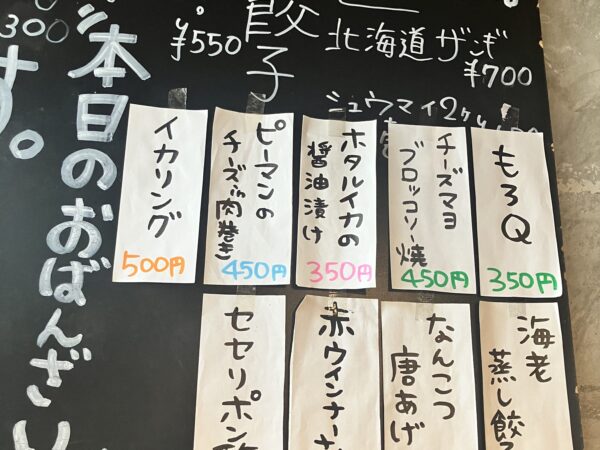 300
す。
本日のおばんざい
¥550
餃子
北海道ザンギ
¥700
シュウマイ2ヶ
もろQ
350円
チーズマヨ
ブロッコリー焼
450円
ホタルイカの
醤油漬け
350円
ピーマンの
チーズin肉巻き
450円
イカリング
500円
海老
蒸し餃子
なんこつ
唐あげ
赤ウインナー
セセリポン酢